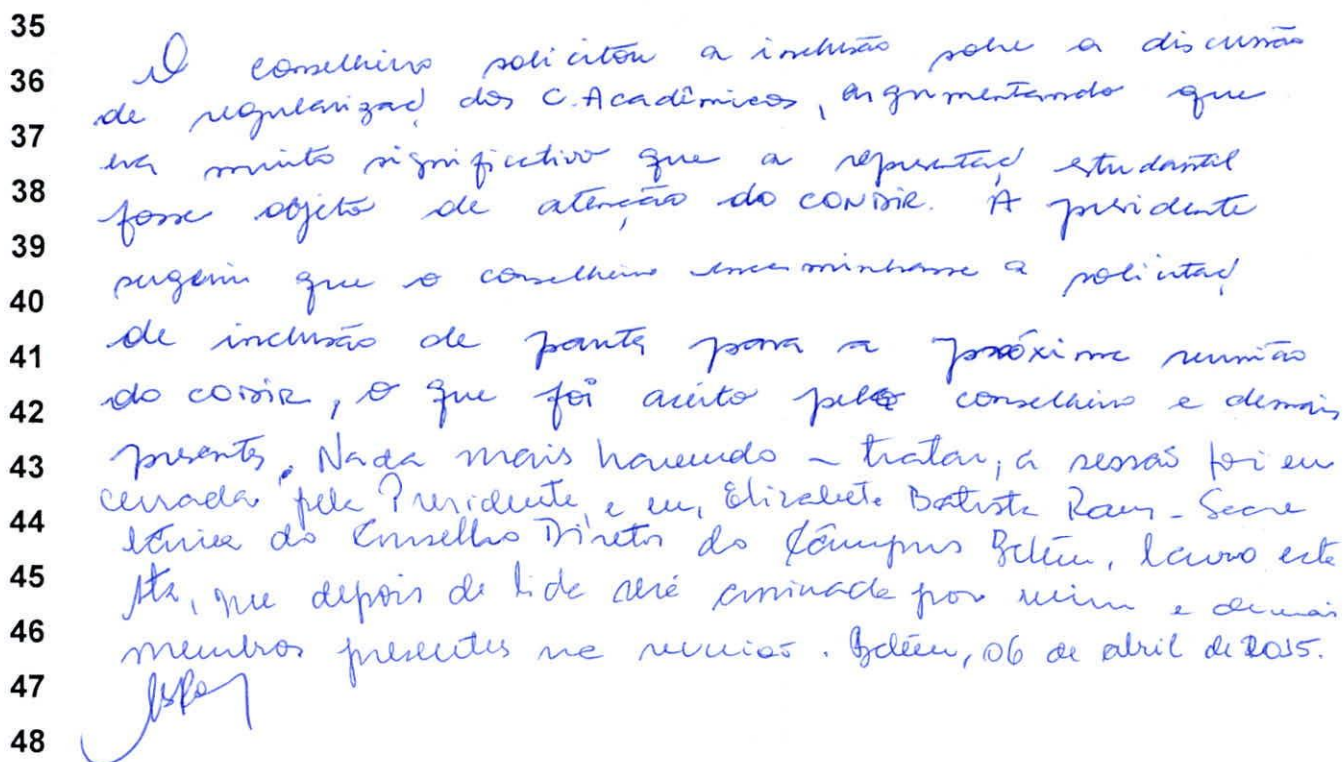 35
36 O conselheiro solicitou a inclusão sobre a discussão
37 de regularizaç dos C. Acadêmicos, argumentando que
38 era muito significativo que a representaç estudantil
39 fosse objeto de atenção do CONDIR. A presidente
40 sugeriu que o conselheiro encaminhasse a solicitaç
41 de inclusão de pauta para a próxima reunião
42 do CODIR, o que foi aceito pelo conselheiro e demais
43 presentes. Nada mais havendo a tratar, a sessão foi en
44 cerrada pela Presidente, e eu, Elizabete Batista - Secre
45 tária do Conselho Diretor do Câmpus Belém, lavro esta
46 Ata, que depois de lida será assinada por mim e demais
47 membros presentes na reunião. Belém, 06 de abril de 2015.
48